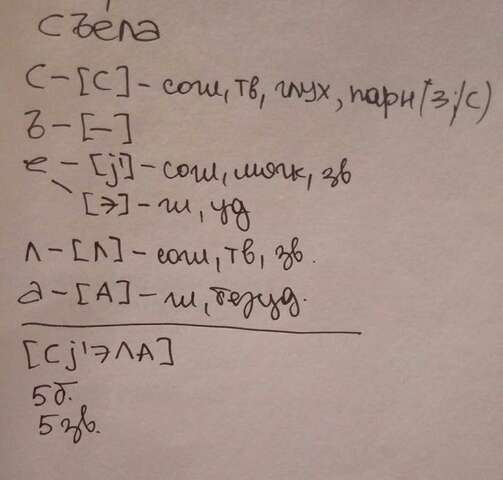 съéла
с – [с] – согл, тв, глух, парн (з/с)
ъ – [–]
е – [j'] – согл, мягк, зв
[э] – гл, уд
л – [л] – согл, тв, зв.
а – [А] – гл, безуд.
[сj'элА]
5 б.
5 зв.